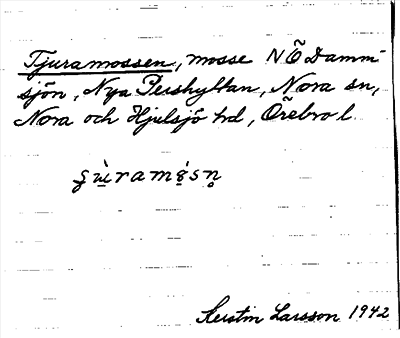 Tjuramossen, mosse NÖ Damm-
sjön, Nya Pershyttan, Nora sn,
Nora och Hjulsjö hd, Örebro l.
Kerstin Larsson 1942